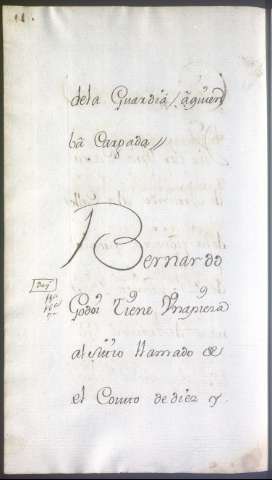 dela Guardia / aquien
bâ Cargada //
Bernardo
Godoi Tiene Vnapieza
al sitio llamado de
el Couto de diez y